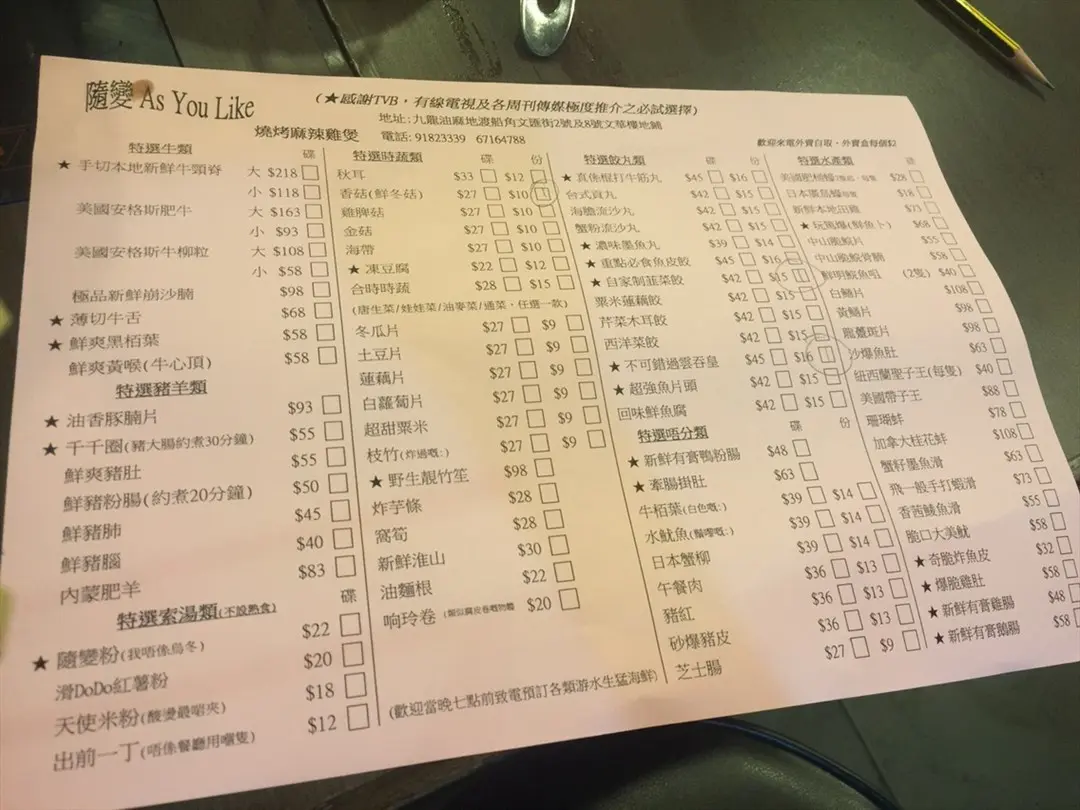 隨變 As You Like
(★感謝TVB，有線電視及各周刊傳媒極度推介之必試選擇)
地址:九龍油麻地渡船角文匯街2號及8號文華樓地鋪
燒烤麻辣雞煲 電話: 91823339 67164788
歡迎來電外賣自取，外賣盒每個$2
特選牛類 碟
★ 手切本地新鮮牛頸脊 大 $218
小 $118
美國安格斯肥牛 大 $163
小 $93
美國安格斯牛柳粒 大 $108
小 $58
極品新鮮崩沙腩 $98
★ 薄切牛舌 $68
★ 鮮爽黑栢葉 $58
鮮爽黃喉(牛心頂) $58
特選豬羊類
★ 油香豚腩片 $93
★ 千千圈(豬大腸約煮30分鐘) $55
鮮爽豬肚 $55
鮮豬粉腸(約煮20分鐘) $50
鮮豬肺 $45
鮮豬腦 $40
內蒙肥羊 $83
特選索湯類(不設熟食) 碟
★ 隨變粉(我唔係烏冬) $22
滑DoDo紅薯粉 $20
天使米粉(酸燙最啱夾) $18
出前一丁(唔係餐廳用嗰隻) $12
特選時蔬類 碟 份
秋耳 $33 $12
香菇(鮮冬菇) $27 $10
雞髀菇 $27 $10
金菇 $27 $10
海帶 $27 $10
★ 凍豆腐 $22 $12
合時時蔬 $28 $15
(唐生菜/娃娃菜/油麥菜/通菜，任選一款)
冬瓜片 $27 $9
土豆片 $27 $9
蓮藕片 $27 $9
白蘿蔔片 $27 $9
超甜粟米 $27 $9
枝竹(炸過嘅:) $27 $9
★ 野生靚竹笙 $98
炸芋條 $28
窩筍 $28
新鮮淮山 $30
油麵根 $22
响玲卷 $20
(歡迎當晚七點前致電預訂各類游水生猛海鮮)
特選餃丸類 碟 份
★ 真係棍打牛筋丸 $45 $16
台式貢丸 $42 $15
海膽流沙丸 $42 $15
蟹粉流沙丸 $42 $15
★ 濃味墨魚丸 $39 $14
★ 重點必食魚皮餃 $45 $16
★ 自家制韮菜餃 $42 $15
粟米蓮藕餃 $42 $15
芹菜木耳餃 $42 $15
西洋菜餃 $42 $15
★ 不可錯過雲吞皇 $45 $16
★ 超強魚片頭 $42 $15
回味鮮魚腐 $42 $15
特選唔分類 碟 份
★ 新鮮有膏鴨粉腸 $48
★ 牽腸掛肚 $63
牛栢葉(白色嘅:) $39 $14
水魷魚 $39 $14
日本蟹柳 $39 $14
午餐肉 $36 $13
豬紅 $36 $13
砂爆豬皮 $36 $13
芝士腸 $27 $9
特選水產類 碟
美國肥桶蠔 $28
日本廣島蠔 $18
新鮮本地田雞 $73
★ 玩風爆(鮮魚卜) $68
中山脆鯇片 $55
中山脆鯇骨腩 $58
鮮明鯇魚咀 (2隻) $40
白鱔片 $108
黃鱔片 $98
龍躉斑片 $98
沙爆魚肚 $63
紐西蘭聖子王(每隻) $40
美國帶子王 $88
珊瑚蚌 $78
加拿大桂花蚌 $108
蟹籽墨魚滑 $63
飛一般手打蝦滑 $73
香茜鯪魚滑 $55
脆口大美魷 $58
★ 奇脆炸魚皮 $32
★ 爆脆雞肚 $58
★ 新鮮有膏雞腸 $48
★ 新鮮有膏鵝腸 $58